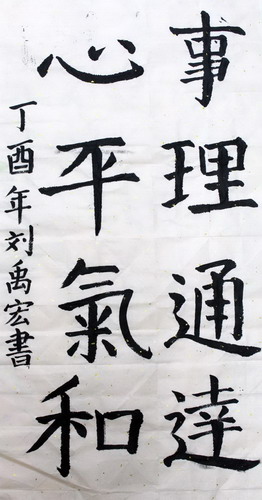 事理通達
心平氣和
丁酉年刘禹宏書